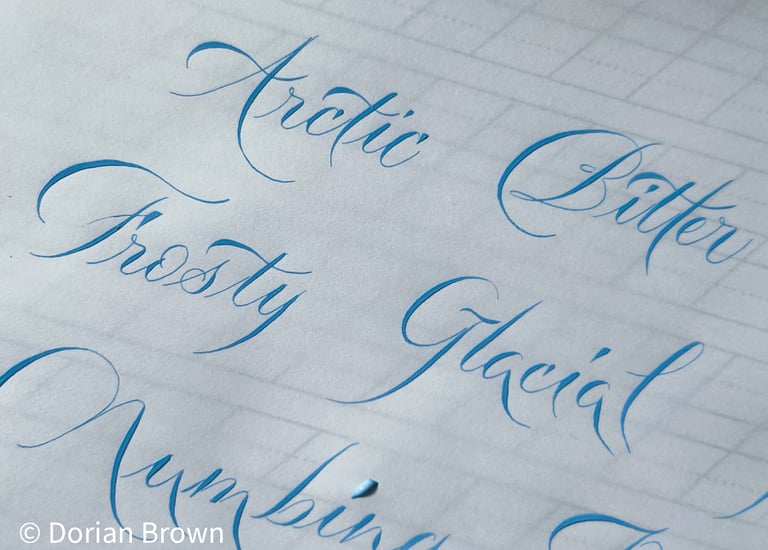 Arctic
Bitter
Frosty
Glacial
Numbing
© Dorian Brown